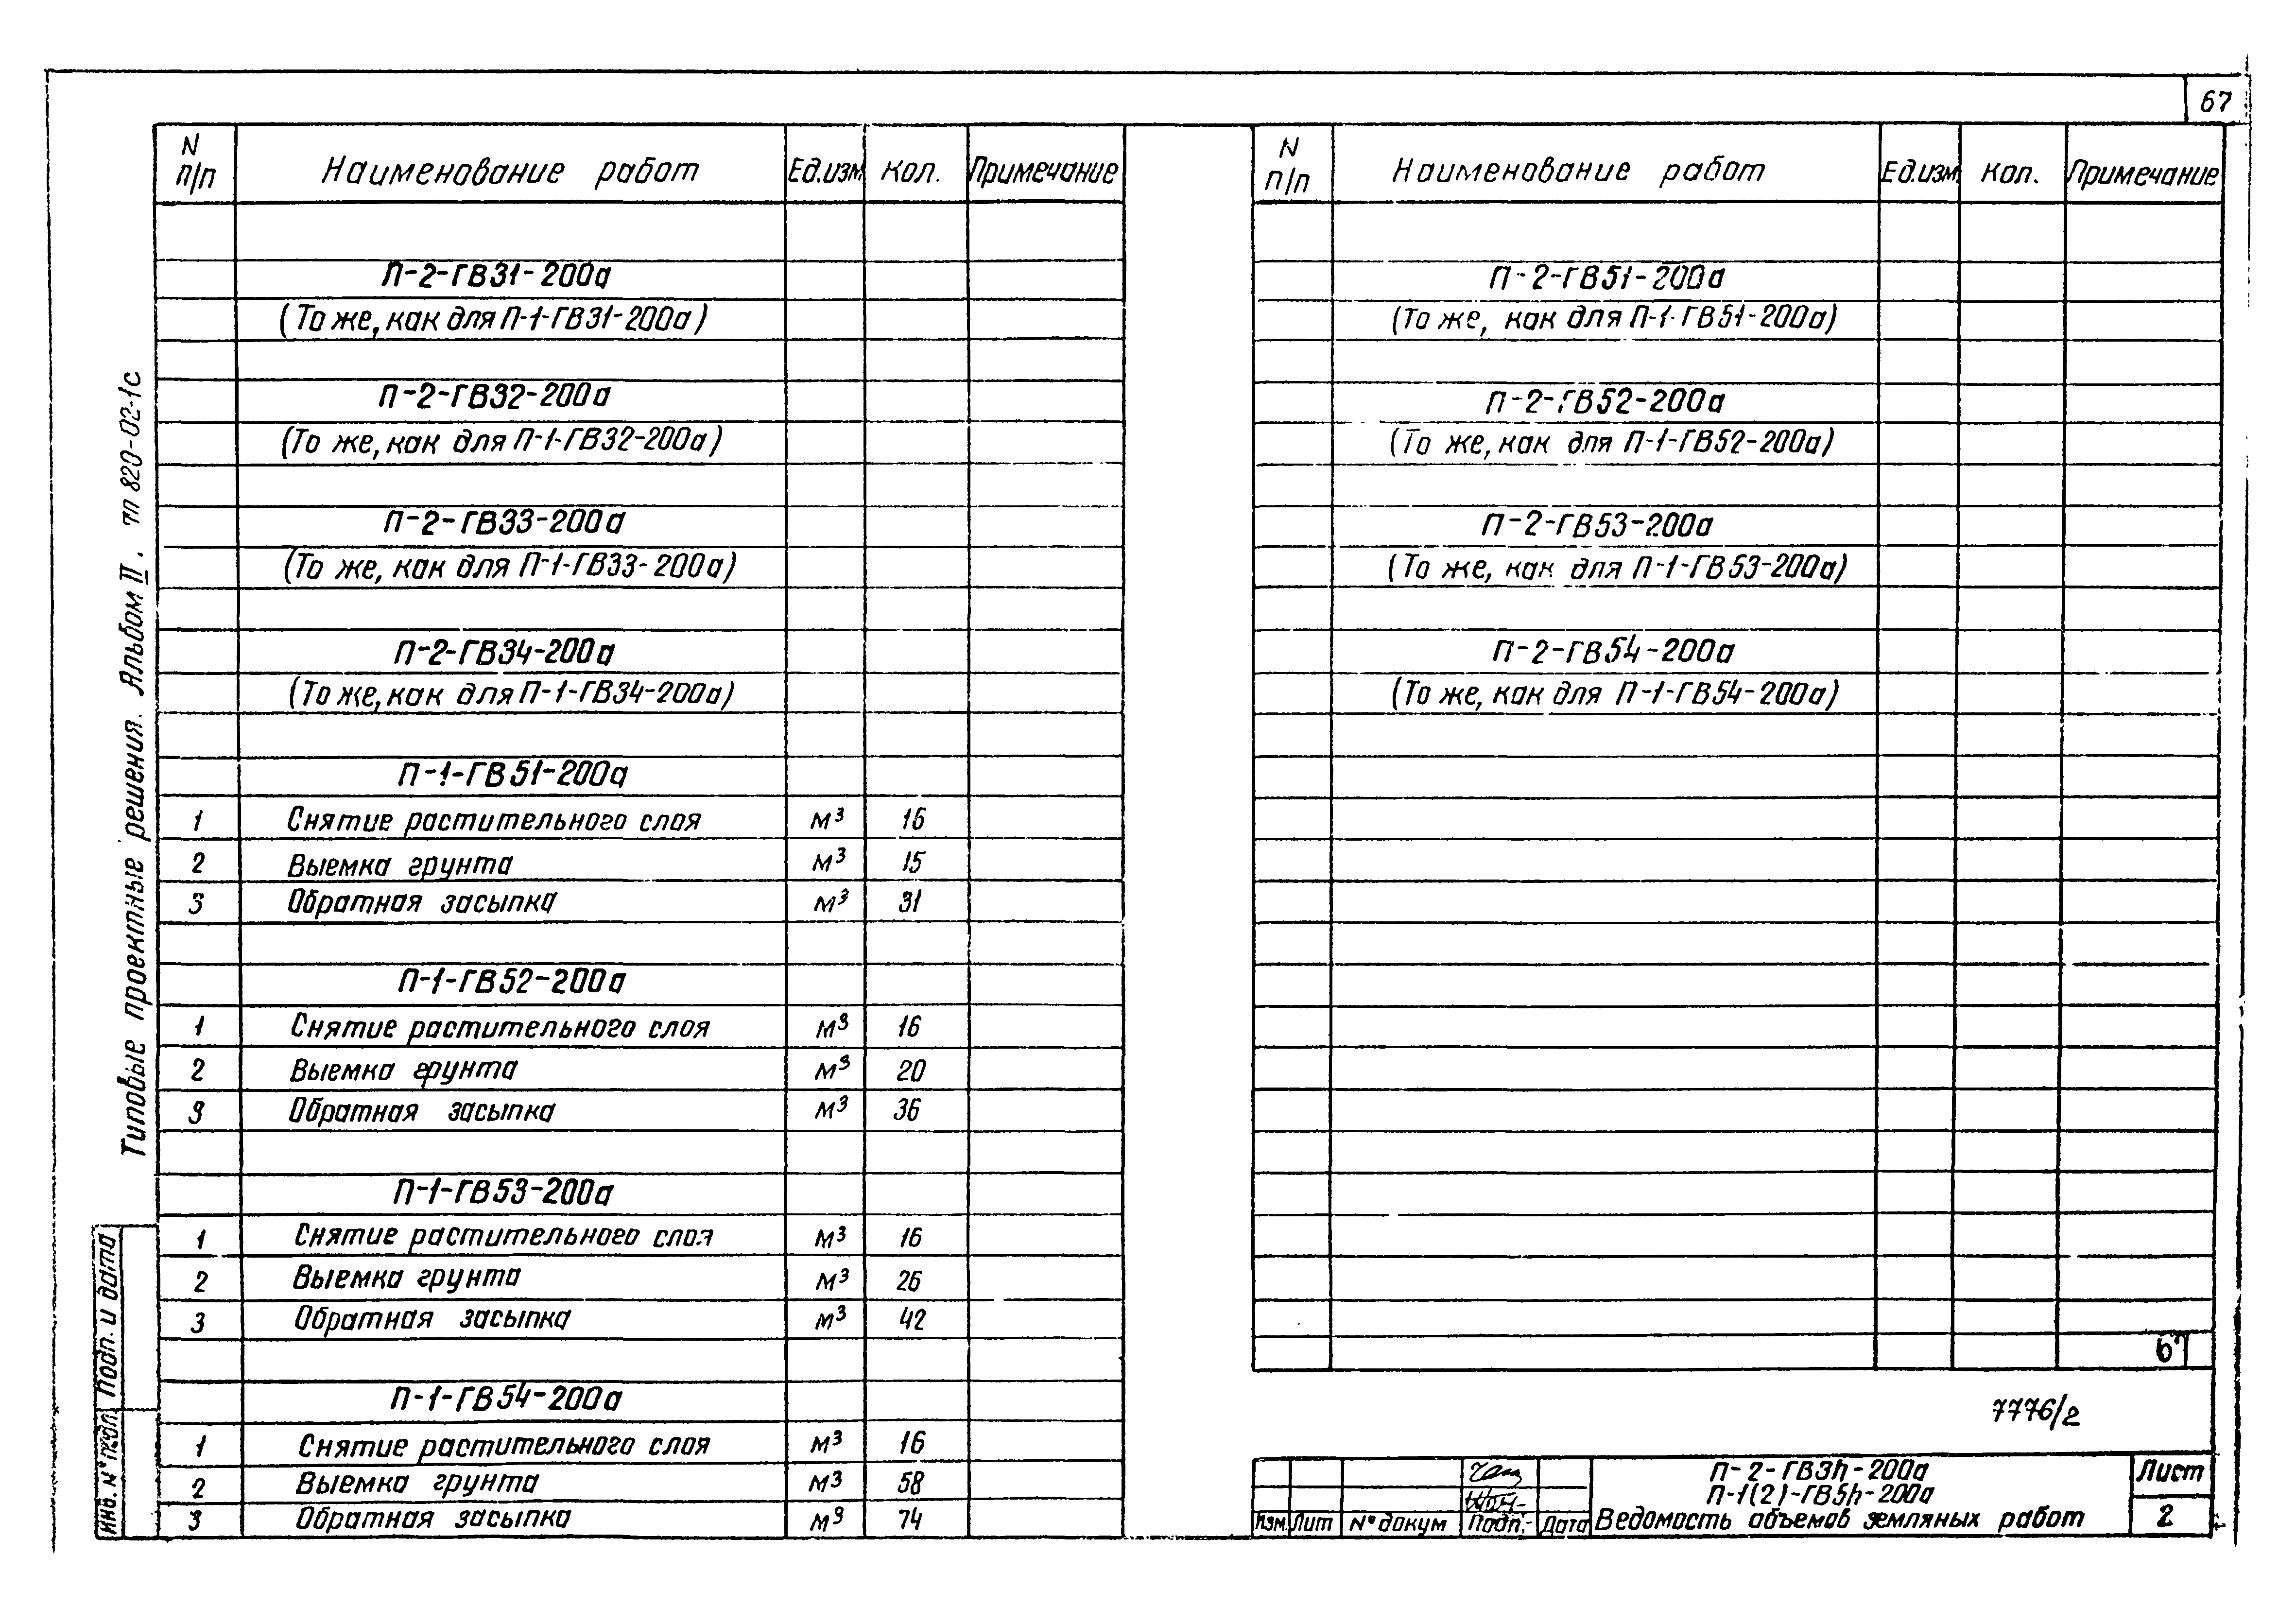 67
N п/п Наименование работ Ед.изм. кол. Примечание
П-2-ГВ31-200а
(То же, как для П-1-ГВ31-200а)
П-2-ГВ32-200а
(То же, как для П-1-ГВ32-200а)
П-2-ГВ33-200а
(То же, как для П-1-ГВ33-200а)
П-2-ГВ34-200а
(То же, как для П-1-ГВ34-200а)
П-1-ГВ51-200а
1 Снятие растительного слоя м³ 16
2 Выемка грунта м³ 15
3 Обратная засыпка м³ 31
П-1-ГВ52-200а
1 Снятие растительного слоя м³ 16
2 Выемка грунта м³ 20
3 Обратная засыпка м³ 36
П-1-ГВ53-200а
1 Снятие растительного слоя м³ 16
2 Выемка грунта м³ 26
3 Обратная засыпка м³ 42
П-1-ГВ54-200а
1 Снятие растительного слоя м³ 16
2 Выемка грунта м³ 58
3 Обратная засыпка м³ 74
N п/п Наименование работ Ед.изм. кол. Примечание
П-2-ГВ51-200а
(То же, как для П-1-ГВ51-200а)
П-2-ГВ52-200а
(То же, как для П-1-ГВ52-200а)
П-2-ГВ53-200а
(То же, как для П-1-ГВ53-200а)
П-2-ГВ54-200а
(То же, как для П-1-ГВ54-200а)
67
7776/2
П-2-ГВ3h-200а
П-1(2)-ГВ5h-200а
Ведомость объемов земляных работ
Лист
2
Изм. Лит № докум Подп. Дата
Типовые проектные решения. Альбом II. тп 820-02-1с
Подп. и дата
Инв. № подл